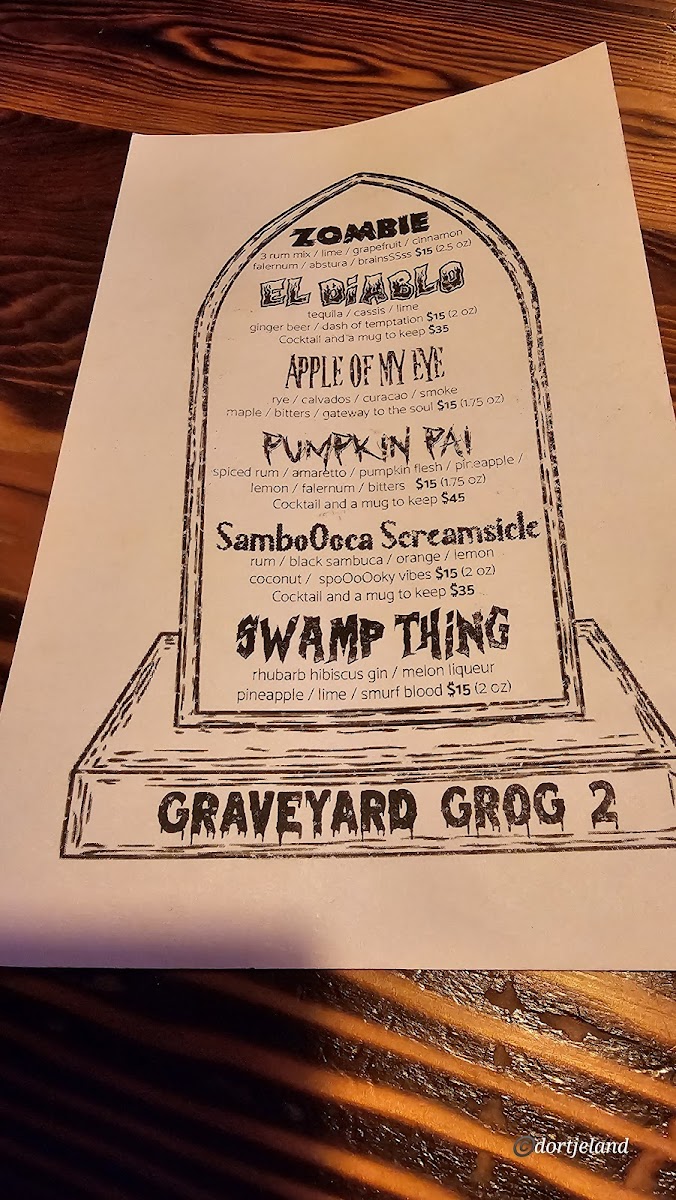 ZOMBIE
3 rum mix / lime / grapefruit / cinnamon
falernum / abstura / brainsSSss $15 (2.5 oz)
EL DiABLO
tequila / cassis / lime
ginger beer / dash of temptation $15 (2 oz)
Cocktail and a mug to keep $35
APPLE OF MY EYE
rye / calvados / curacao / smoke
maple / bitters / gateway to the soul $15 (1.75 oz)
PUMPKIN PAI
spiced rum / amaretto / pumpkin flesh / pineapple /
lemon / falernum / bitters $15 (1.75 oz)
Cocktail and a mug to keep $45
SamboOoca Screamsicle
rum / black sambuca / orange / lemon
coconut / spoOoOoky vibes $15 (2 oz)
Cocktail and a mug to keep $35
SWAMP THiNG
rhubarb hibiscus gin / melon liqueur
pineapple / lime / smurf blood $15 (2 oz)
GRAVEYARD GROG 2
©dortjeland